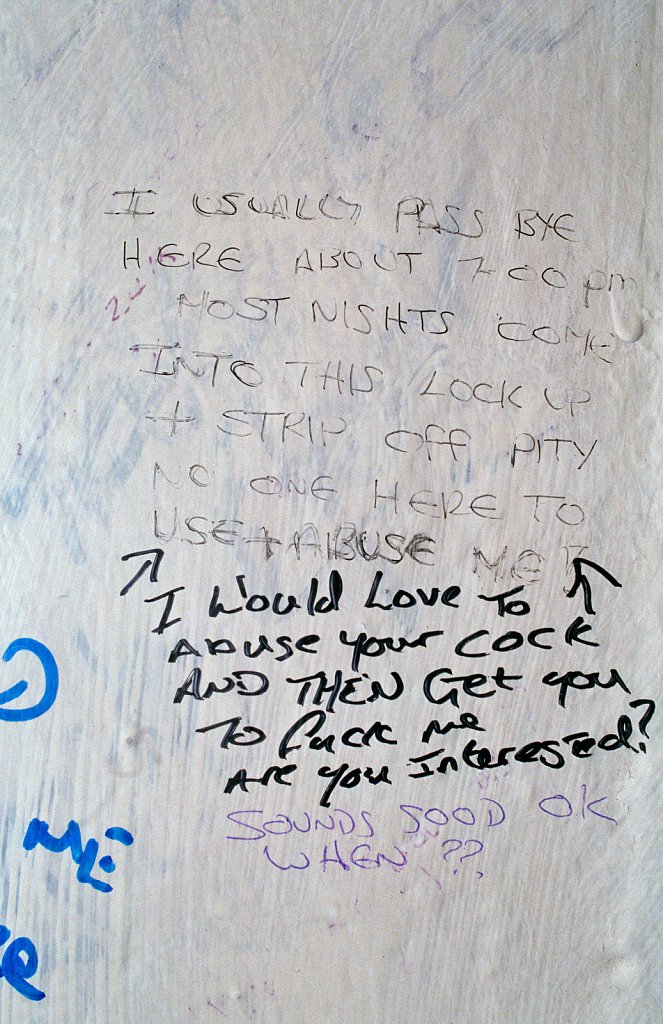 I USUALLY PASS BYE
HERE ABOUT 7-00 pm
MOST NIGHTS COME
INTO THIS LOCK UP
+ STRIP OFF PITY
NO ONE HERE TO
USE + ABUSE ME
I Would Love To
ABUSE your COCK
AND THEN Get you
To fuck me
Are you Interested?
SOUNDS GOOD OK
WHEN ??
ME